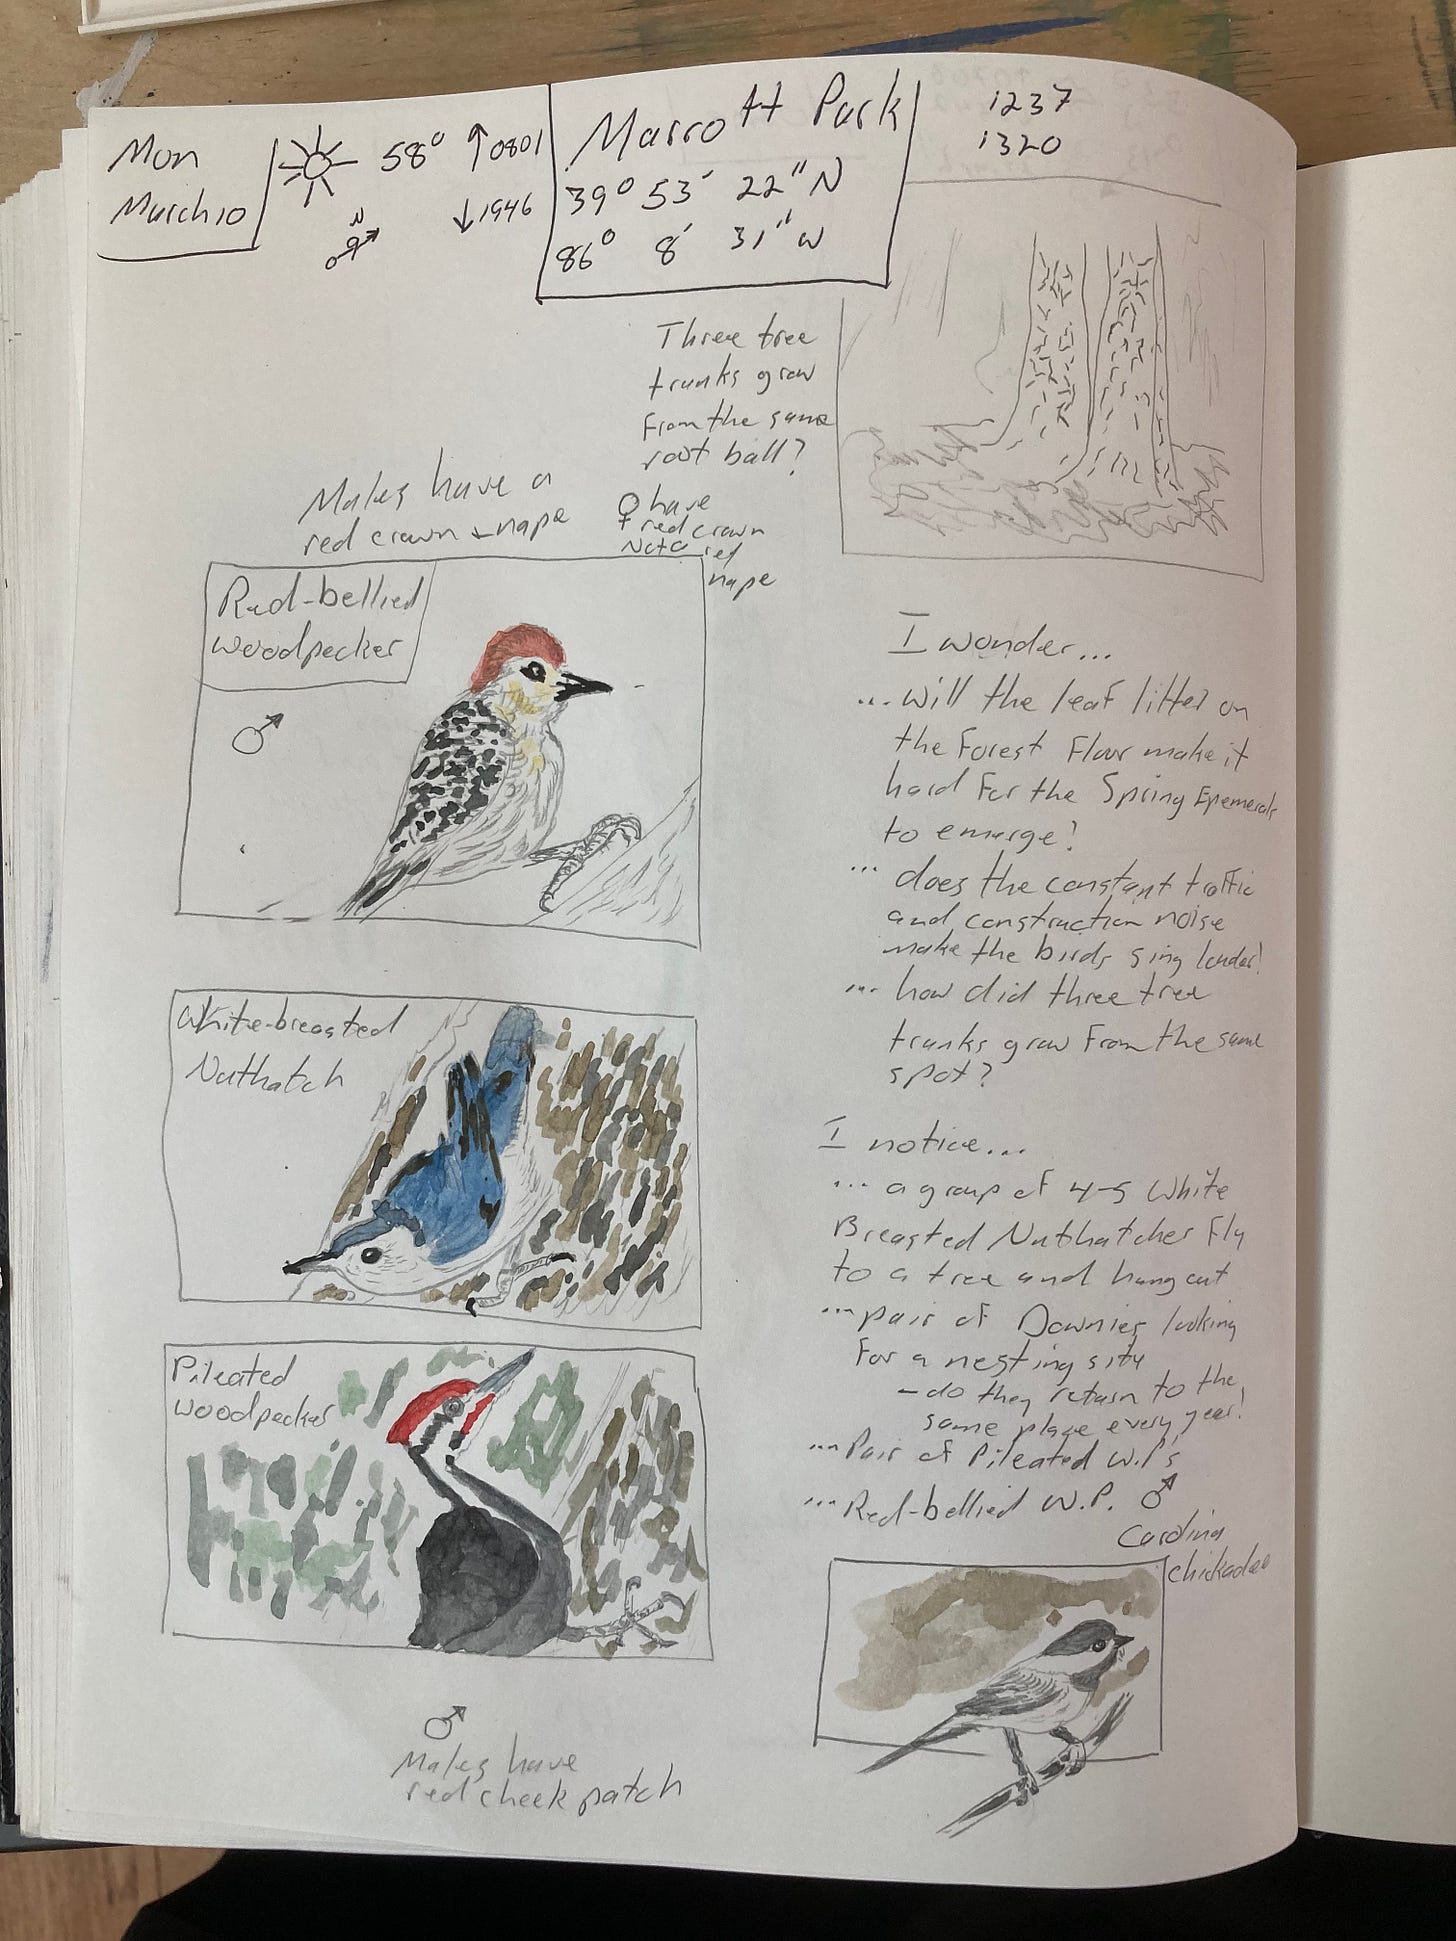 Mon
March 10
58° ↑0801
N
↓1946
Marrott Park
39° 53' 22" N
86° 8' 31" W
1237
1320
Three tree
trunks grow
from the same
root ball?
Males have a
red crown + nape
♀ have
red crown
Not a red
nape
Red-bellied
woodpecker
♂
White-breasted
Nuthatch
Pileated
woodpecker
♂
Males have
red cheek patch
I wonder...
... will the leaf litter on
the forest floor make it
hard for the Spring Epemerals
to emerge?
... does the constant traffic
and construction noise
make the birds sing louder?
... how did three tree
trunks grow from the same
spot?
I notice...
... a group of 4-5 White
Breasted Nuthatches fly
to a tree and hang out
... pair of Downies looking
for a nesting site
- do they return to the
same place every year?
... Pair of Pileated W.P.'s
... Red-bellied W.P. ♂
Carolina
chickadee